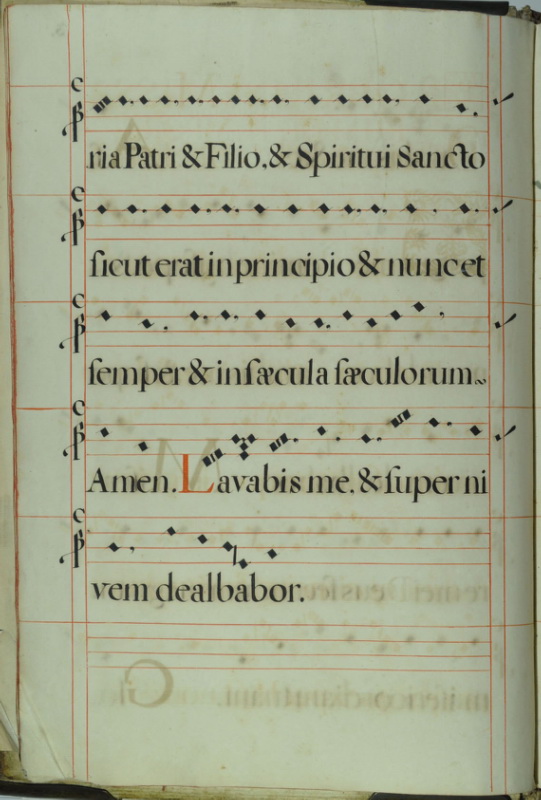 ria Patri & Filio. & Spiritui Sancto
ſicut erat in principio & nunc et
ſemper & in ſæcula ſæculorum~
Amen. Lavabis me. & ſuper ni
vem dealbabor.